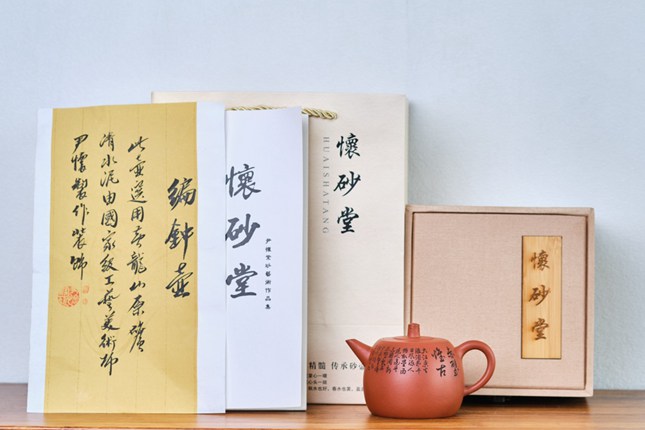 編鐘壺
此壺選用黃龍山原礦
清水泥由國家級工藝美術師
尹懷製作裝飾
懷砂堂
尹懷紫砂藝術作品集
懷砂堂
HUAISHATANG
精髓 传承砂
懷砂堂
赤壁
懷古
大江東去